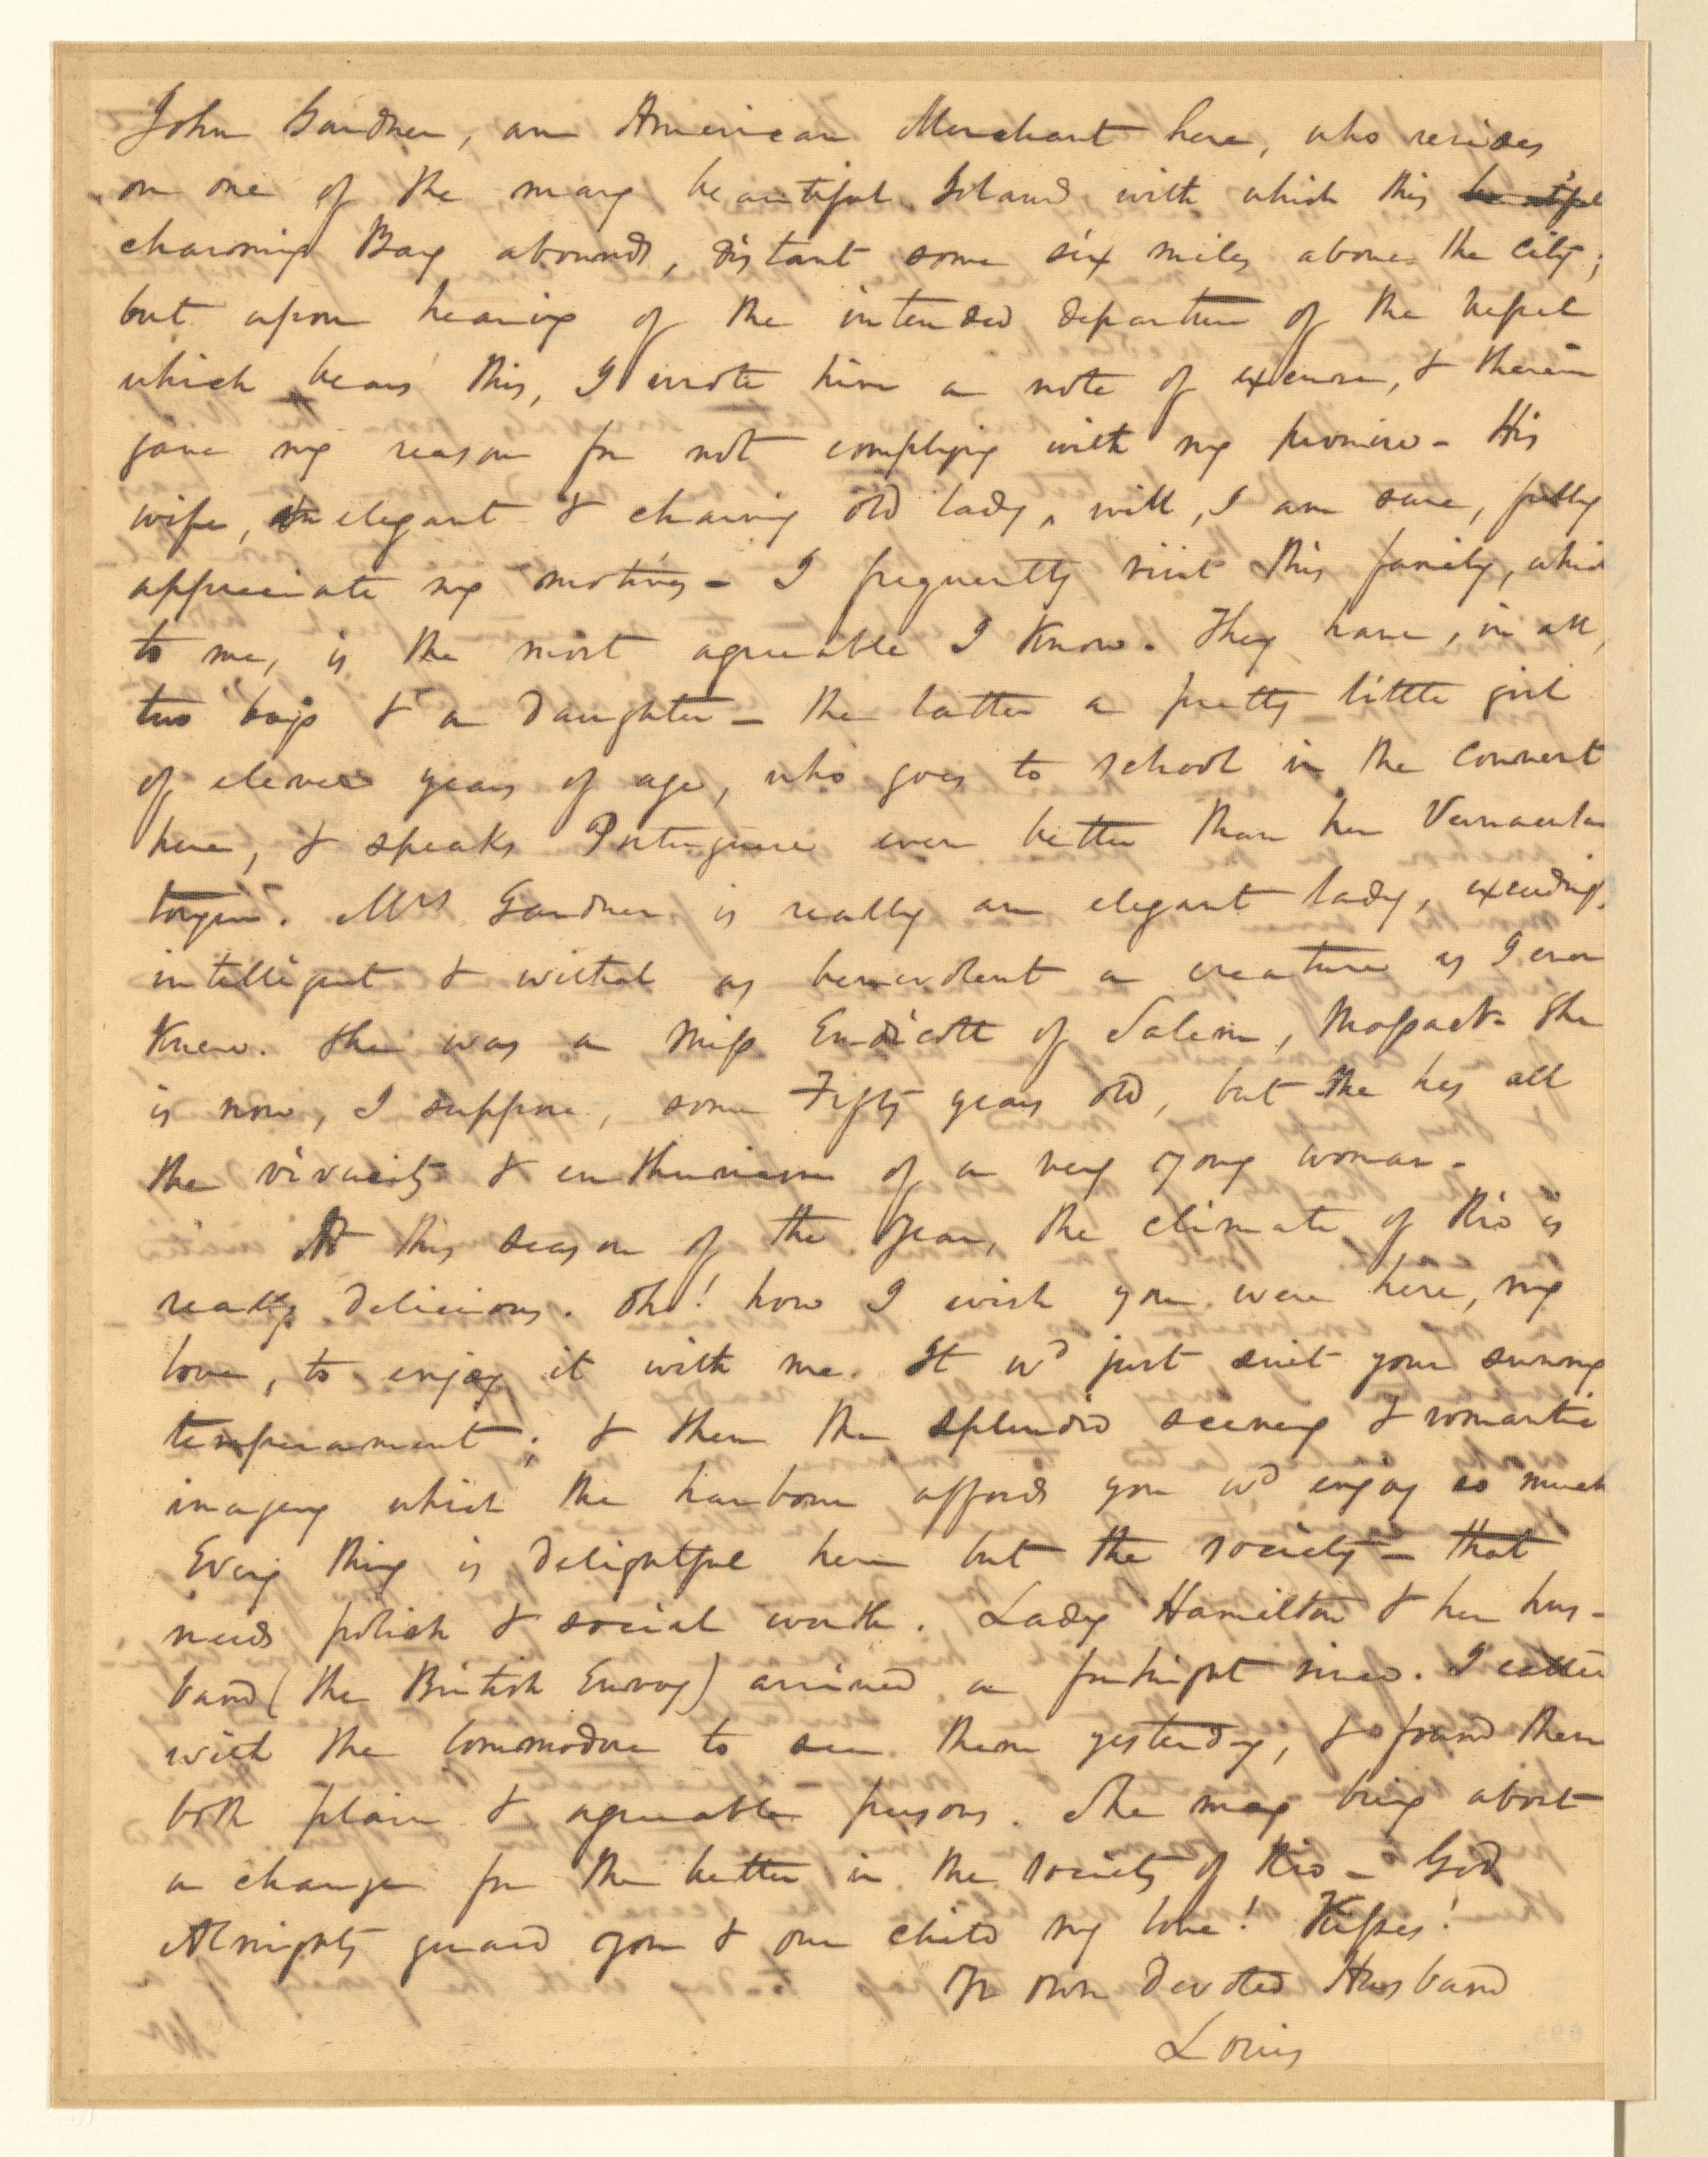 John Gardner, an American Merchant here, who resides
on one of the many beautiful Islands with which this beautiful
charming Bay abounds, distant some six miles above the City;
but upon hearing of the intended departure of the vessel
which bears this, I wrote him a note of excuse, & therein
gave my reason for not complying with my promise - His
wife, an elegant & charming old lady, will, I am sure, fully
appreciate my motives - I frequently visit this family, which
to me, is the most agreeable I know. They have, in all,
two boys & a daughter - the latter a pretty little girl
of eleven years of age, who goes to school in the Convent
here, & speaks Portuguese even better than her Vernacular
tongue. Mrs Gardner is really an elegant lady, exceeding
intelligent & withal as benevolent a creature as I ever
knew. She was a Miss Endicott of Salem, Massact. She
is now, I suppose, some Fifty years old, but she has all
the vivacity & enthusiasm of a very young woman -
At this season of the year, the climate of Rio is
really delicious. Oh! how I wish you were here, my
love, to enjoy it with me. It wd just suit your sunny
temperament; & then the splendid scenery & romantic
imagery which the harbour affords you wd enjoy so much
Every thing is delightful here but the society - that
needs polish & social worth. Lady Hamilton & her hus-
band (the British Envoy) arrived a fortnight since. I called
with the Commodore to see them yesterday, & found them
both plain & agreeable persons. She may bring about
a change for the better in the society of Rio - God
Almighty guard you & our child my love! Kisses!
Yr own devoted Husband
Louis